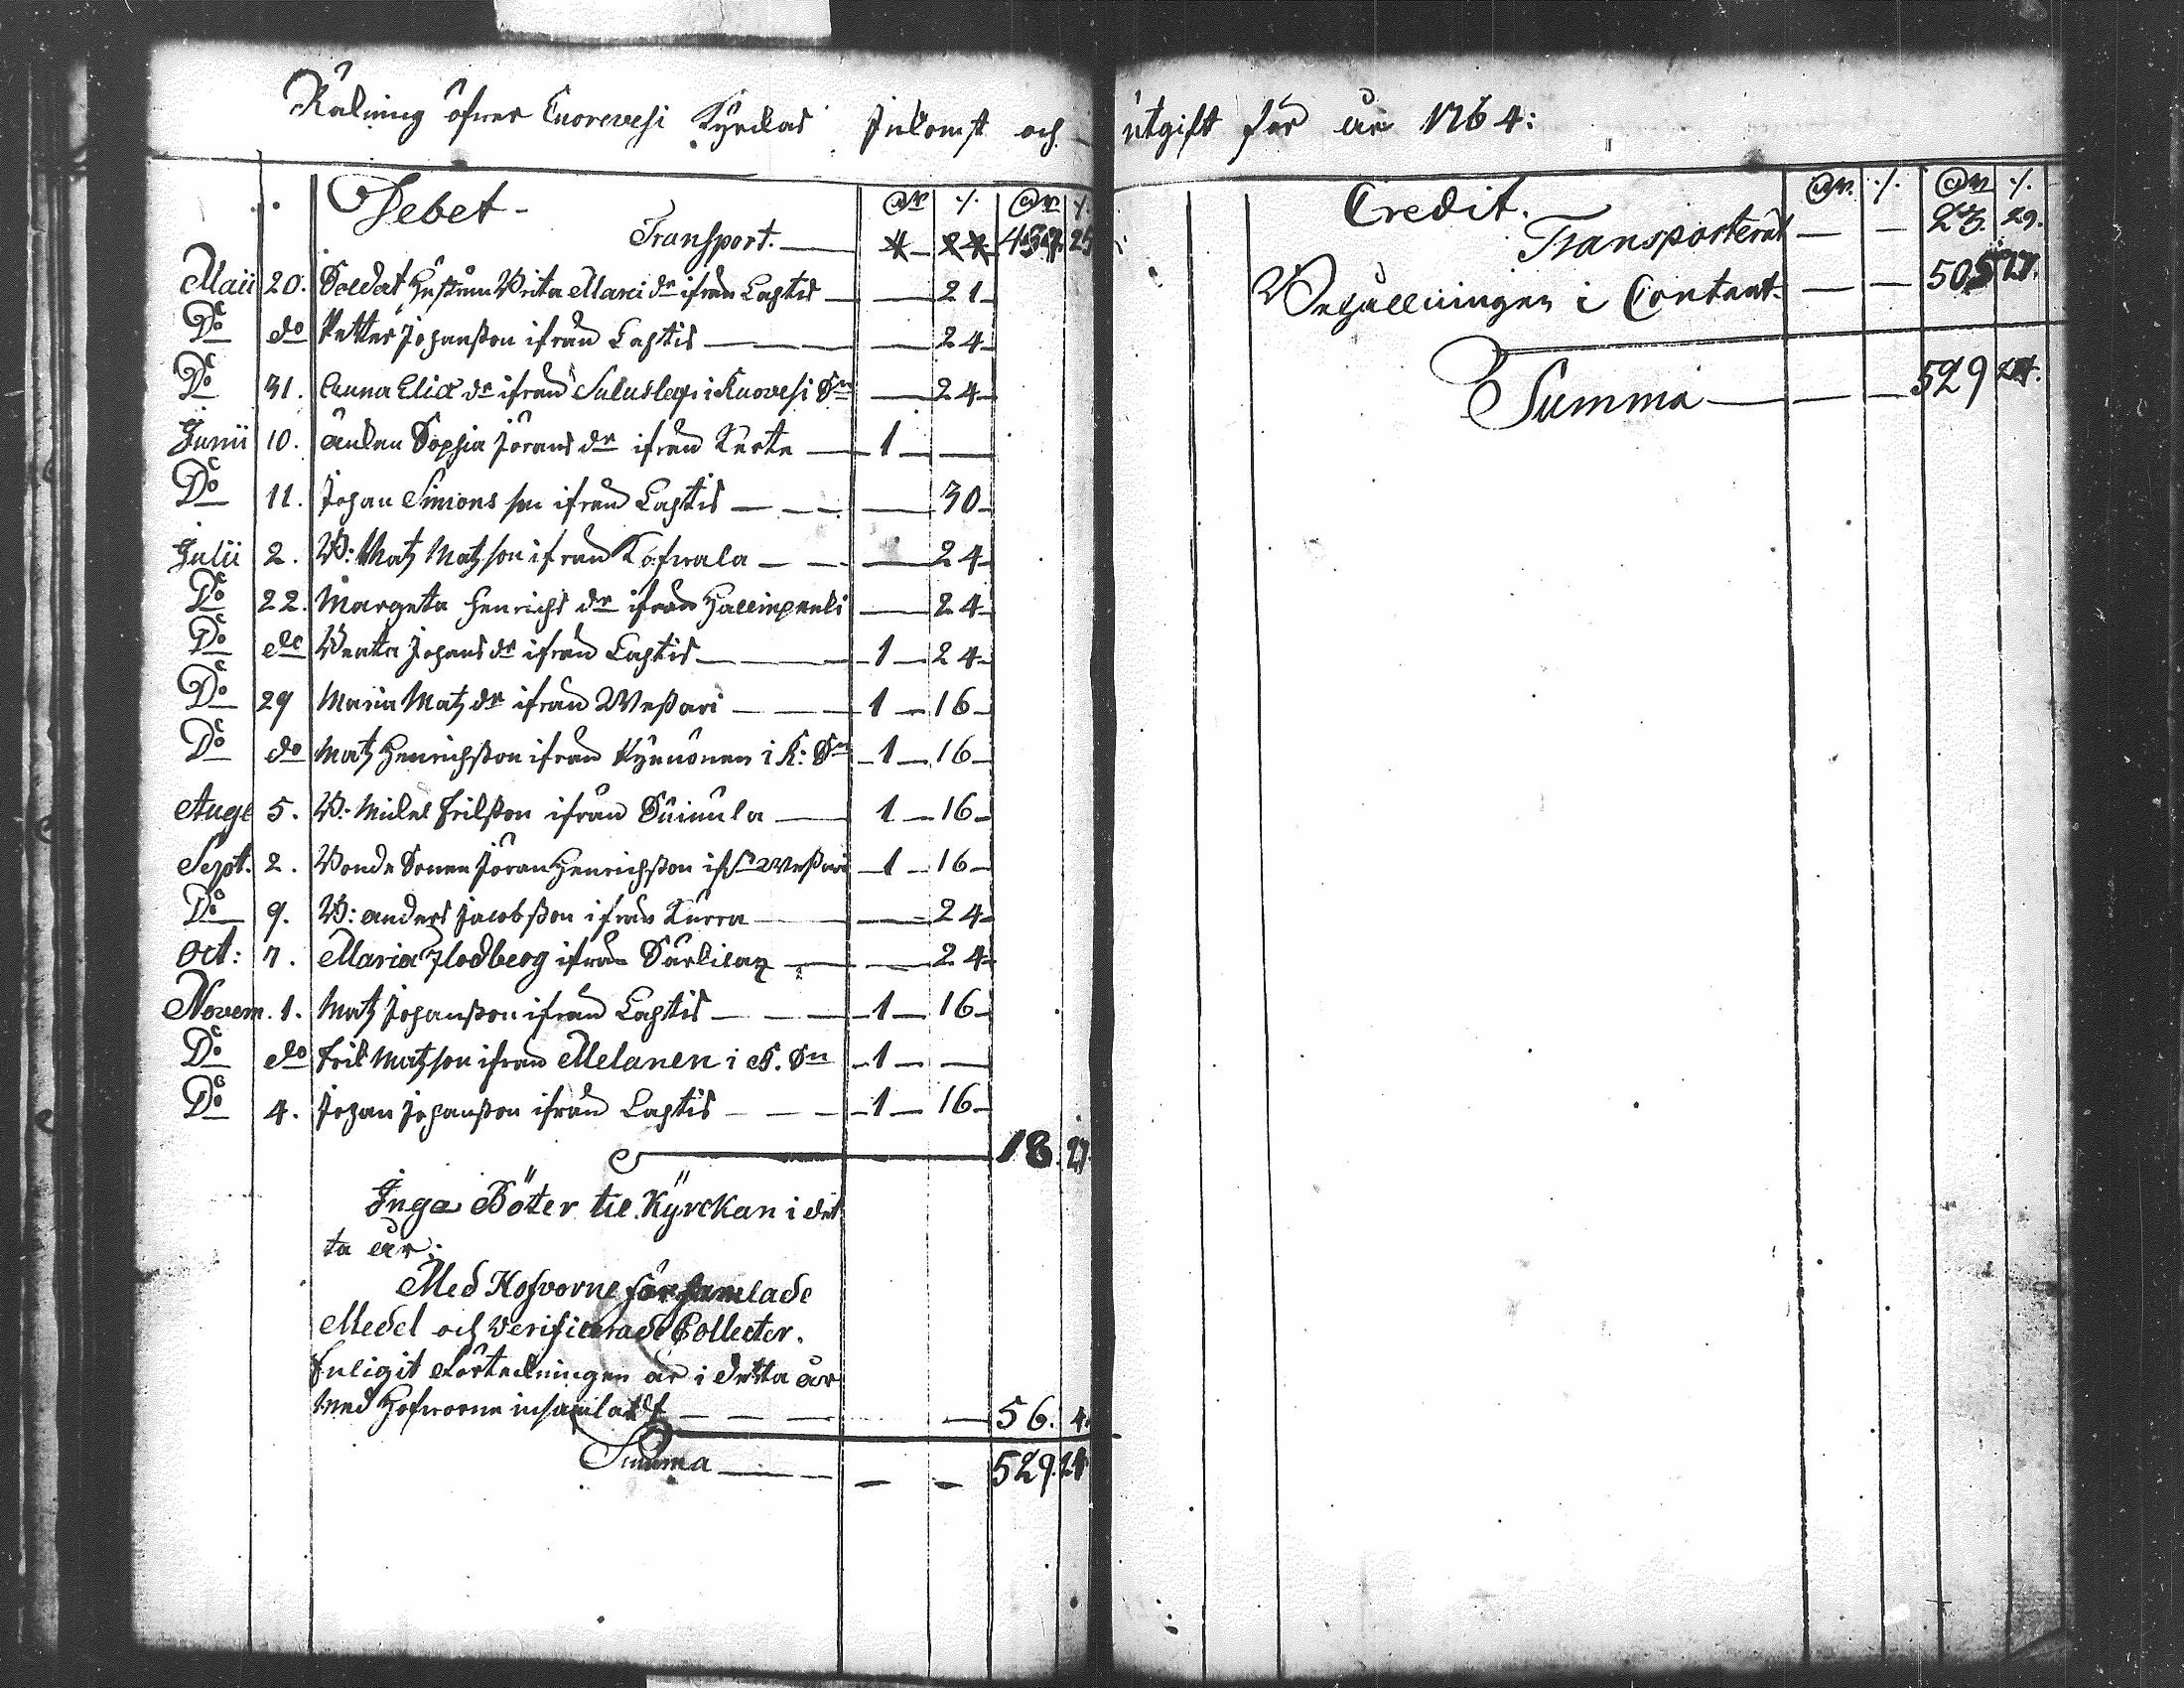 Räkning öfwer Cuorevesi Kyrckas Inkomst och utgift för år 1764:
Debet
Transport. 437. 25
Maii 20. Soldat Hustrun Brita Mari dr ifrån Lahtis 21
Do do Petter Johansson ifrån Lahtis 24
Do 31. Anna Eliæ dr ifrån i Kuovesi Sn 24
Junii 10. Änkan Sophia Jörans dr ifrån Kerte 1
Do 11. Johan Simons son ifrån Lahtis 30
Julii 2. B: Matz Matzson ifrån Kofwala 24
Do 22. Margeta Henrichs dr ifrån Hallinpenki 24
Do do Beata Johans dr ifrån Lahtis 1 24
Do 29 Maria Matz dr ifrån Wessari 1 16
Do do Matz Henrichsson ifrån i K: Sn 1 16
Aug: 5. B: Mickel Erilsson ifrån Suinula 1 16
Sept. 2. Bonde Sonen Jöran Henrichsson if. Wessari 1 16
Do 9. B: Anders Jacobsson ifrån Kurra 24
Oct: 7. Maria Flodberg ifrån Särkilax 24
Novem. 1. Matz Johansson ifrån Lahtis 1 16
Do do Erik Matzson ifrån Melanen i K. Sn 1
Do 4. Johan Johansson ifrån Lahtis 1 16
18. 27
Inga Böter til Kyrckan i det
ta år:
Med Hofvorne församlade
Medel och Verificerade Collecter.
Enligit Förtekningen är i detta år
Med Hofworne insamlat 56. 4.
Summa 529. 24
Credit.
Transporterat 23. 29.
Behållningen i Contant. 505 27.
Summa 529 24.